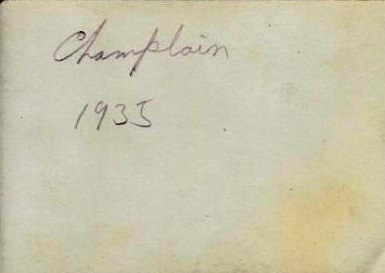 Champlain
1935